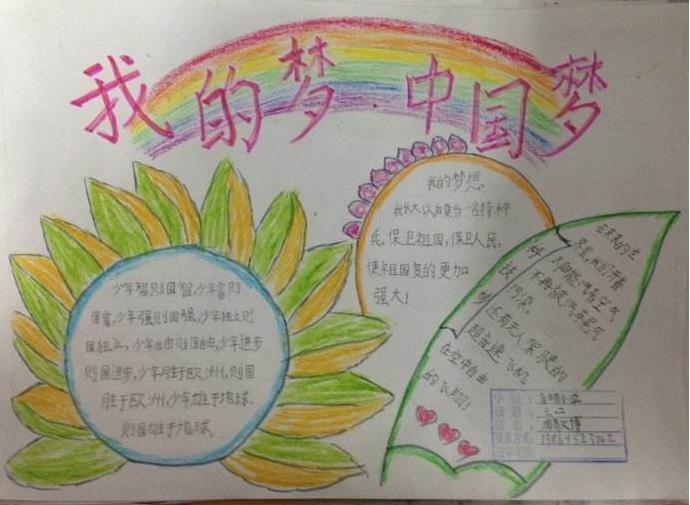 我的梦·中国梦
我的梦想
我长大以后要当一名特种
兵，保卫祖国，保卫人民，
使祖国变的更加
强大！
少年智则国智，少年富则
国富，少年强则国强，少年独立则
国独立，少年自由则国自由，少年进步
则国进步，少年胜于欧洲，则国
胜于欧洲，少年雄于地球，
则国雄于地球。
科技梦
在未来的世
界里，我们开着
不再放汽车尾气
污染。
还有无人驾驶的
超音速飞机
在空中自由
的飞翔！
三二